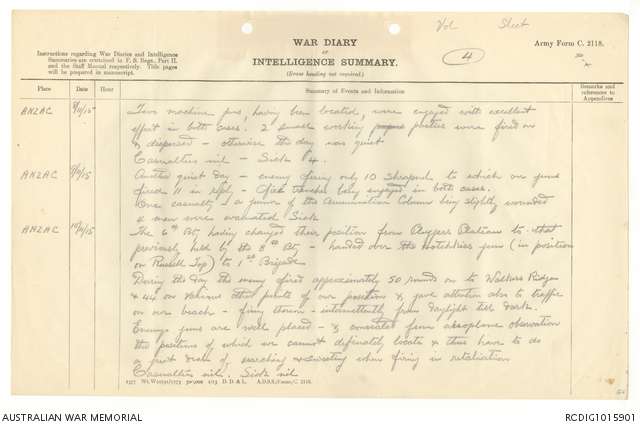 Vol Sheet
WAR DIARY
or
INTELLIGENCE SUMMARY.
(Erase heading not required.)
4
Army Form C. 2118.
Instructions regarding War Diaries and Intelligence
Summaries are contained in F. S. Regs., Part II.
and the Staff Manual respectively. Title pages
will be prepared in manuscript.
Place Date Hour Summary of Events and Information Remarks and references to Appendices
ANZAC 8/11/15 Two machine guns, having been located, were engaged with excellent
effect in both cases. 2 small working parties were fired on
& dispersed - otherwise the day was quiet
Casualties nil - Sick 4.
ANZAC 9/11/15 Another quiet day - enemy firing only 10 shrapnel to which our guns
fired 11 in reply - trenches being engaged in both cases.
One casualty a gunner of the Ammunition Column being slightly wounded
a man were evacuated Sick
ANZAC 10/11/15 The 6th Bty having changed their position from Pluggers Plateau to that
previously held by the 8th Bty - handed over the Hotchkiss guns (in position
on Russell Top) to 1st Brigade
During the day the enemy fired approximately 50 rounds on to Walkers Ridge
& 44 on various other points of our position & gave attention also to traffic
on our beach - firing thereon - intermittently from daylight till dark.
Enemys guns are well placed - & concealed from aeroplane observation
the positions of which we cannot definately locate & thus have to do
a great deal of searching & sweeping when firing in retaliation
Casualties nil. Sick nil
A.D.S.S./Forms/C. 2118.
AUSTRALIAN WAR MEMORIAL
RCDIG1015901